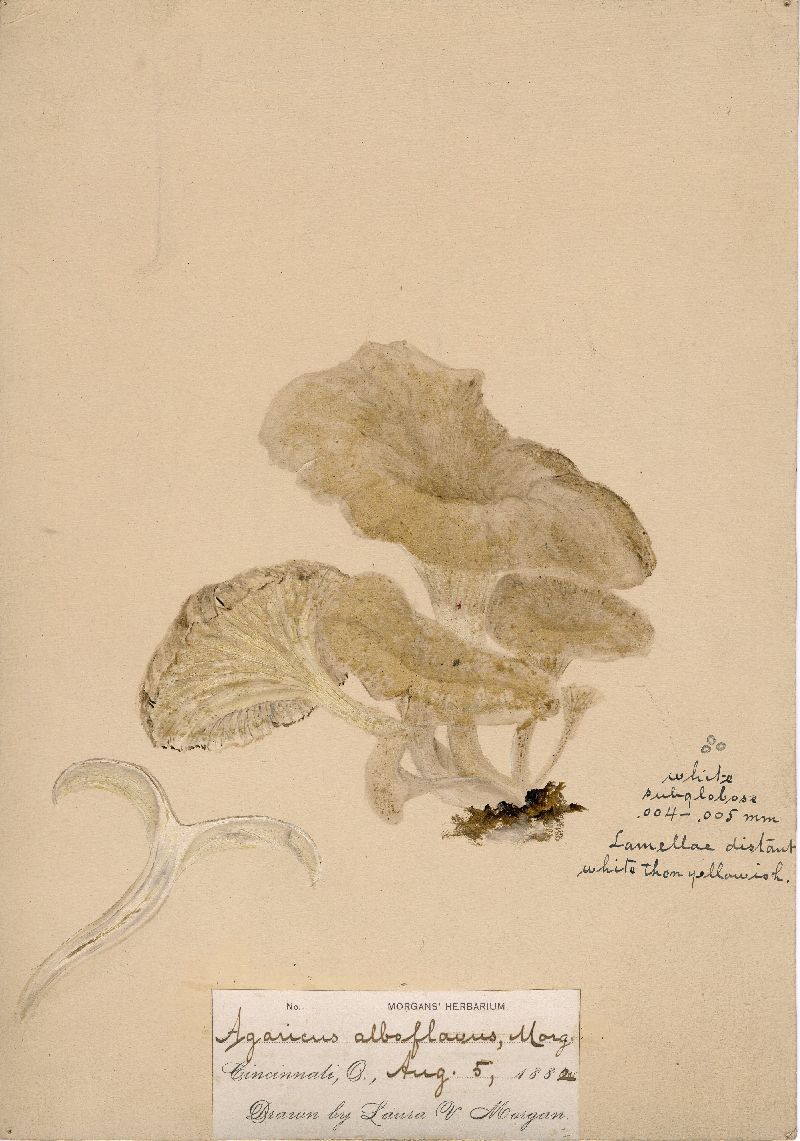 white
subglobose
.004 - .005 mm
Lamellae distant
white then yellowish.
No. MORGANS' HERBARIUM
Agaricus alboflavus, Morg.
Cincinnati, O., Aug. 5, 1882
Drawn by Laura V Morgan.